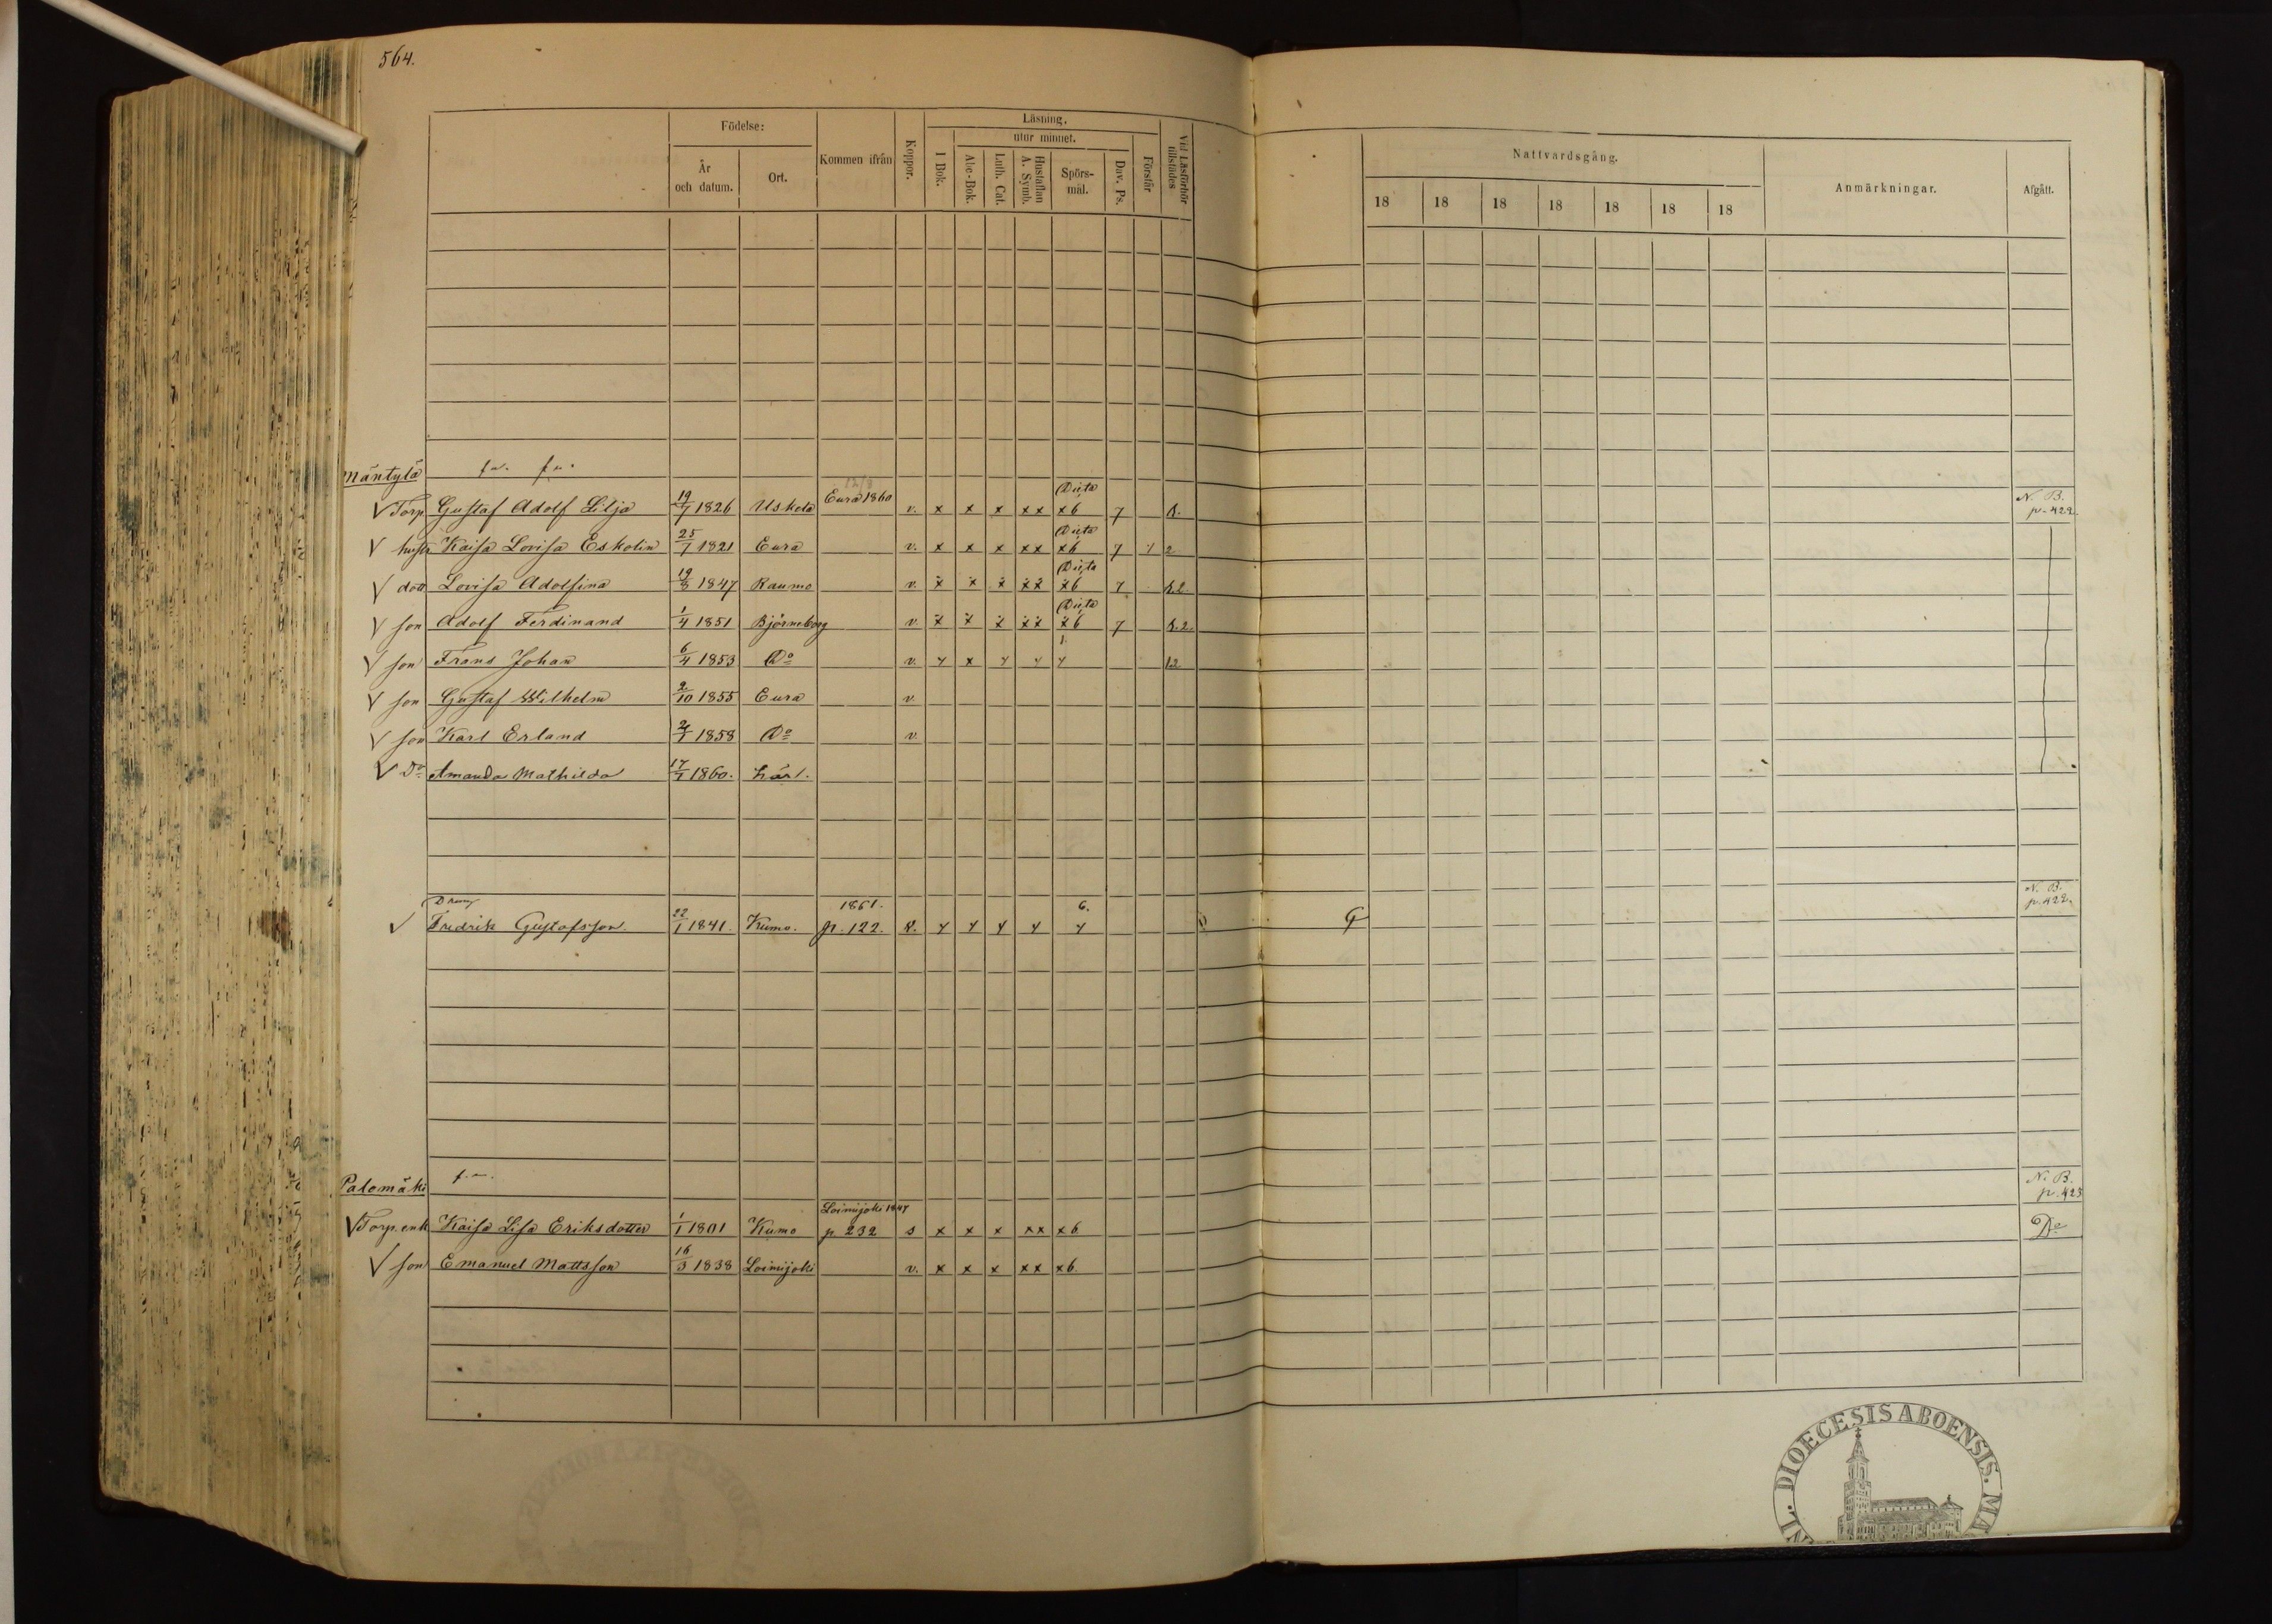 564.
Födelse:
Kommen ifrån
Koppor.
Läsning.
utur minnet.
Vid Läsförhör tillstädes
År och datum.
Ort.
I Bok.
Abc-Bok.
Luth. Cat.
Hustaflan A. Symb.
Spörs-mål.
Dav. Ps.
Förstår
Nattvardsgång.
Anmärkningar.
Afgått.
18 18 18 18 18 18 18
Mäntylä
Torp. Gustaf Adolf Lilja 19/7 1826 Uskela Eura 1860 v. x x x xx x6 7 N. B. p. 422
hustr Kaisa Lovisa Eskolin 25/7 1821 Eura v. x x x xx x6 7 2
dott Lovisa Adolfina 19/3 1847 Raumo v. x x x xx x6 7
son Adolf Ferdinand 1/4 1851 Björneborg v. x x x xx x6 7
son Frans Johan 6/4 1853 Do v. x 12
son Gustaf Wilhelm 2/10 1855 Eura v.
son Karl Erland 2/1 1858 Do v.
Do Amanda Mathilda 17/7 1860. härst.
Dräng
Fredrik Gustafsson. 22/1 1841. Kumo. 1861. p. 122. 6. N. B. p. 422.
Palomäki N. B. p. 423
Torp. enk Kaisa Lisa Eriksdotter 1/1 1801 Kumo Loimijoki 1847 p 232 s x x x xx x6 Do
son Emanuel Mattsson 16/3 1838 Loimijoki v. x x x xx x6
DIOECESIS ABOENSIS. MA